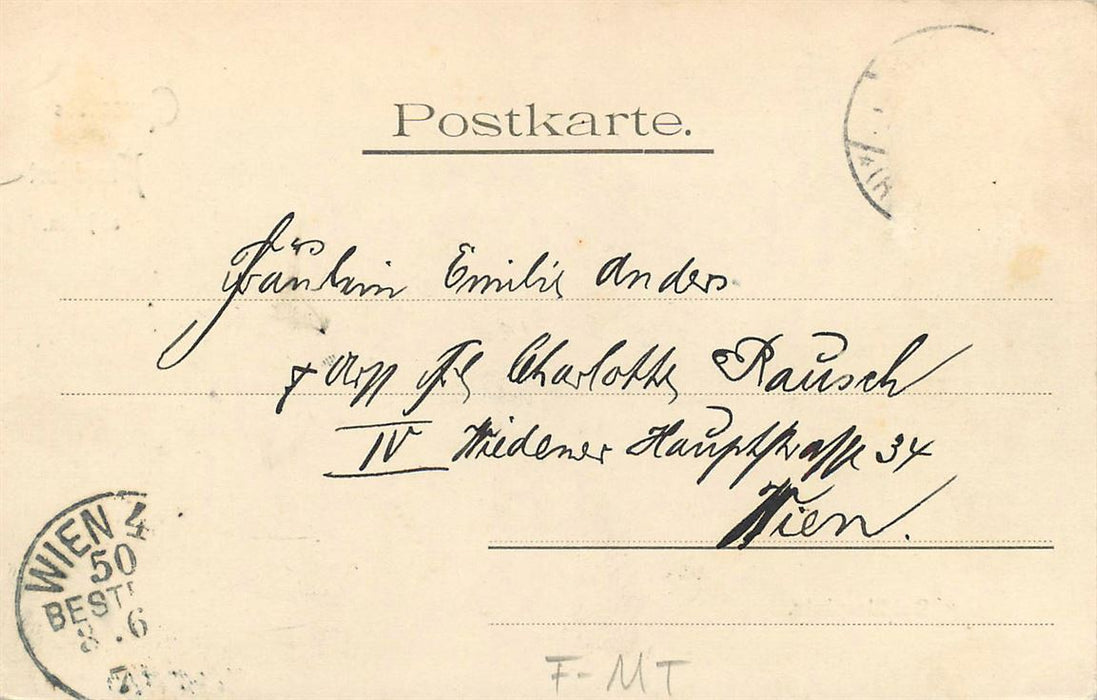 Postkarte.
Fräulein Emilie Anders
Frl Charlotte Rausch
IV Wiedener Hauptstrasse 34
Wien.
WIEN 4
50
BEST
8.6
F-MT